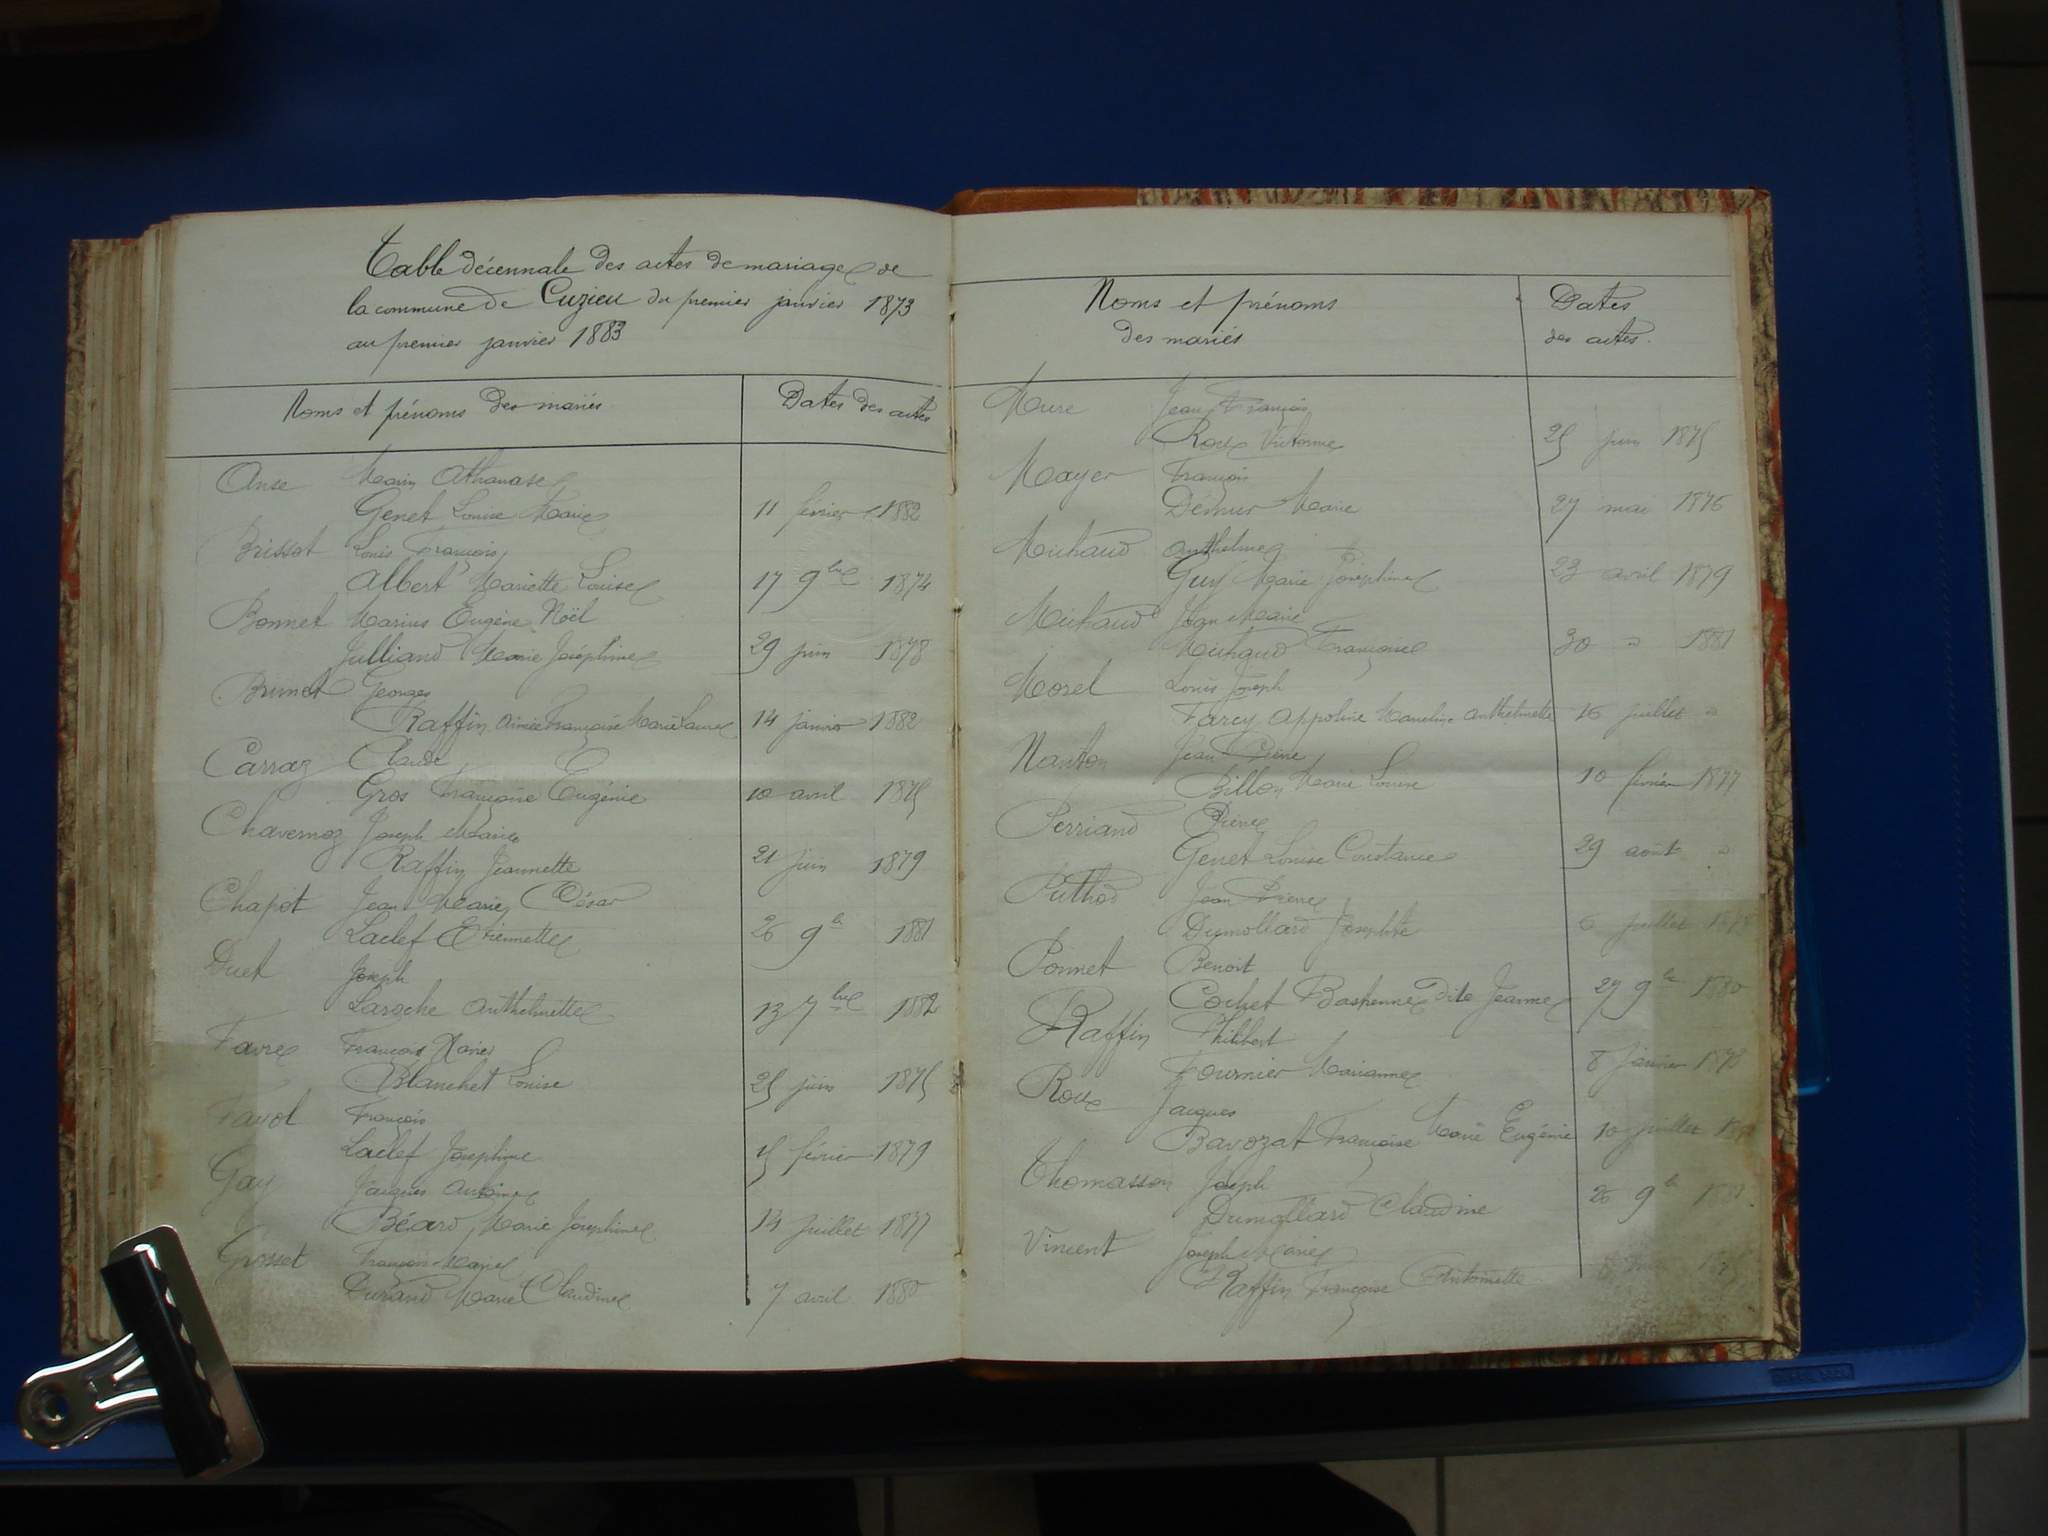 Table décennale des actes de mariage de
la commune de Cuzieu du premier janvier 1873
au premier janvier 1883
Noms et prénoms des mariés
Dates des actes
Anse Marin Athanase
Genet Louise Marie 11 février 1882
Brissot Louis François
Albert Mariette Louise 17 9bre 1874
Bonnet Marius Eugène Noël
Julliand Marie Joséphine 29 juin 1878
Brunet Georges
Raffin Aimée Françoise Marie Laure 14 janvier 1882
Carraz Claude
Gros Françoise Eugénie 10 avril 1875
Chavernoz Joseph Marie
Raffin Jeannette 21 juin 1879
Chapot Jean Marie César
Laclef Etiennette 26 9b 1881
Duet Joseph
Laroche Anthelmette 13 7bre 1882
Favre François Xavier
Blanchet Louise 25 juin 1875
Favot François
Laclef Joséphine 15 février 1879
Gay Jacques Antoine
Béard Marie Joséphine 14 juillet 1877
Grosset François Marie
Durand Marie Claudine 7 avril 1880
Noms et prénoms
des mariés
Dates
des actes.
Mure Jean François
Roux Victorine 25 juin 1875
Mayer François
Démur Marie 27 mai 1876
Michaud Anthelme
Guy Marie Joséphine 23 avril 1879
Michaud Jean Marie
Michaud Françoise 30 " 1881
Morel Louis Joseph
Farcy Appoline Anthelmette 16 juillet "
Nanton Jean Pierre
Billon Marie Louise 10 février 1877
Perriand Pierre
Genet Louise Constance 29 août "
Puthod Jean Pierre
Dumollard Josephte 6 juillet
Ponnet Benoit
Cochet Bastienne dite Jeanne 27 9b 1880
Raffin Philibert
Fournier Marianne 8 janvier 1873
Roux Jacques
Bavozat Françoise Marie Eugénie 10 juillet
Thomasson Joseph
Dumollard Claudine 26 9b 1881
Vincent Joseph Marie
Raffin Françoise Antoinette